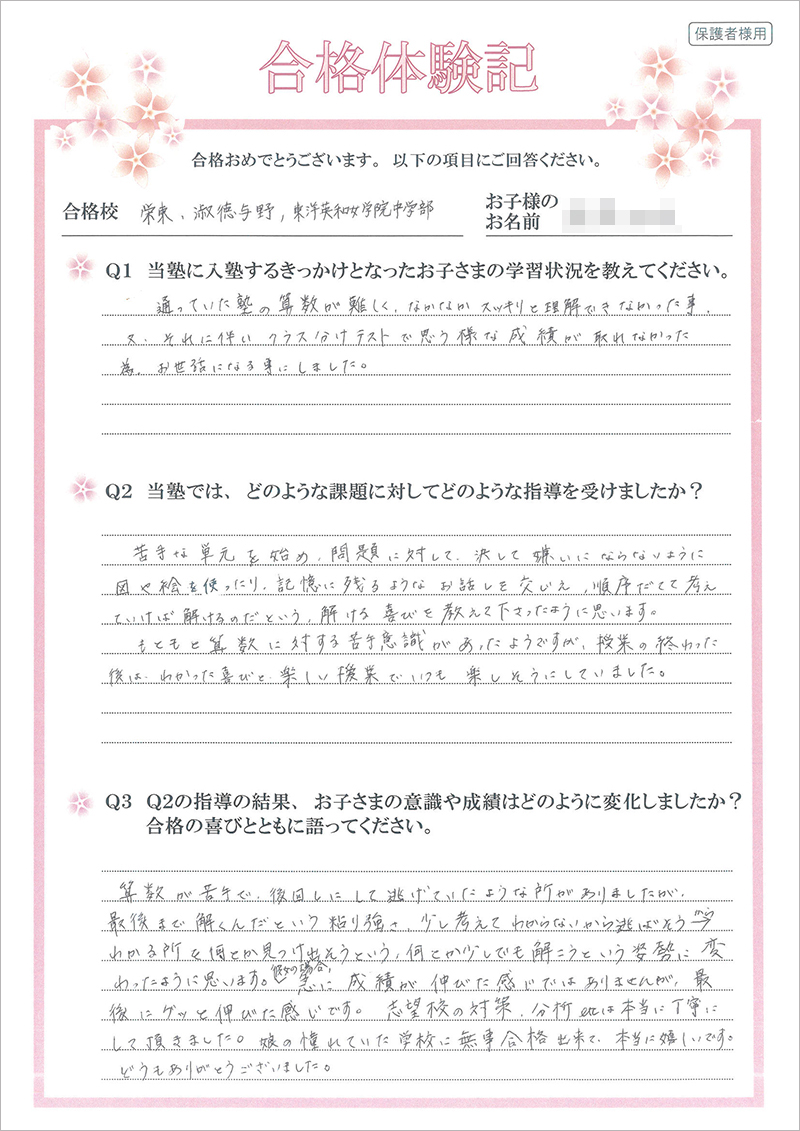 保護者様用
合格体験記
合格おめでとうございます。以下の項目にご回答ください。
合格校 栄東、淑徳与野, 東洋英和女学院中学部
お子様の
お名前
Q1 当塾に入塾するきっかけとなったお子さまの学習状況を教えてください。
通っていた塾の算数が難しく、なかなかスッキリと理解できなかった事、
又、それに伴いクラス分けテストで思う様な成績が取れなかった
為、お世話になる事にしました。
Q2 当塾では、どのような課題に対してどのような指導を受けましたか？
苦手な単元を始め、問題に対して、決して嫌いにならないように
図や絵を使ったり、記憶に残るようなお話しを交じえ、順序だてて考え
ていけば解けるのだという、解ける喜びを教えて下さったように思います。
もともと算数に対する苦手意識があったようですが、授業の終わった
後は、わかった喜びと、楽しい授業でいつも楽しそうにしていました。
Q3 Q2の指導の結果、お子さまの意識や成績はどのように変化しましたか？
合格の喜びとともに語ってください。
算数が苦手で、後回しにして逃げていたような所がありましたが、
最後まで解くんだという粘り強さ、少し考えてわからないから逃ばそう
わかる所を何とか見つけ出そうという、何とか少しでも解こうという姿勢に変
わったように思います。娘の場合、急に成績が伸びた感じではありませんが、最
後にグッと伸びた感じです。志望校の対策、分析etcは本当に丁寧に
して頂きました。娘の憧れていた学校に無事合格出来て、本当に嬉しいです。
どうもありがとうございました。